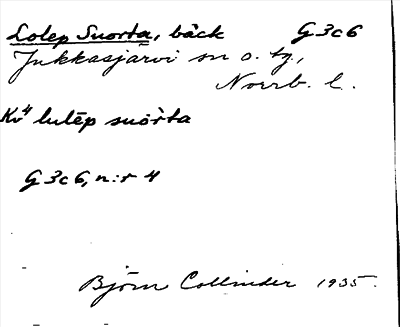 Lolep Suorta, bäck G 3 c 6
Jukkasjärvi sn o. tg.,
Norrb. l.
Kv4 lulēp suort̀a
G 3 c 6, n:r 4
Björn Collinder 1935.